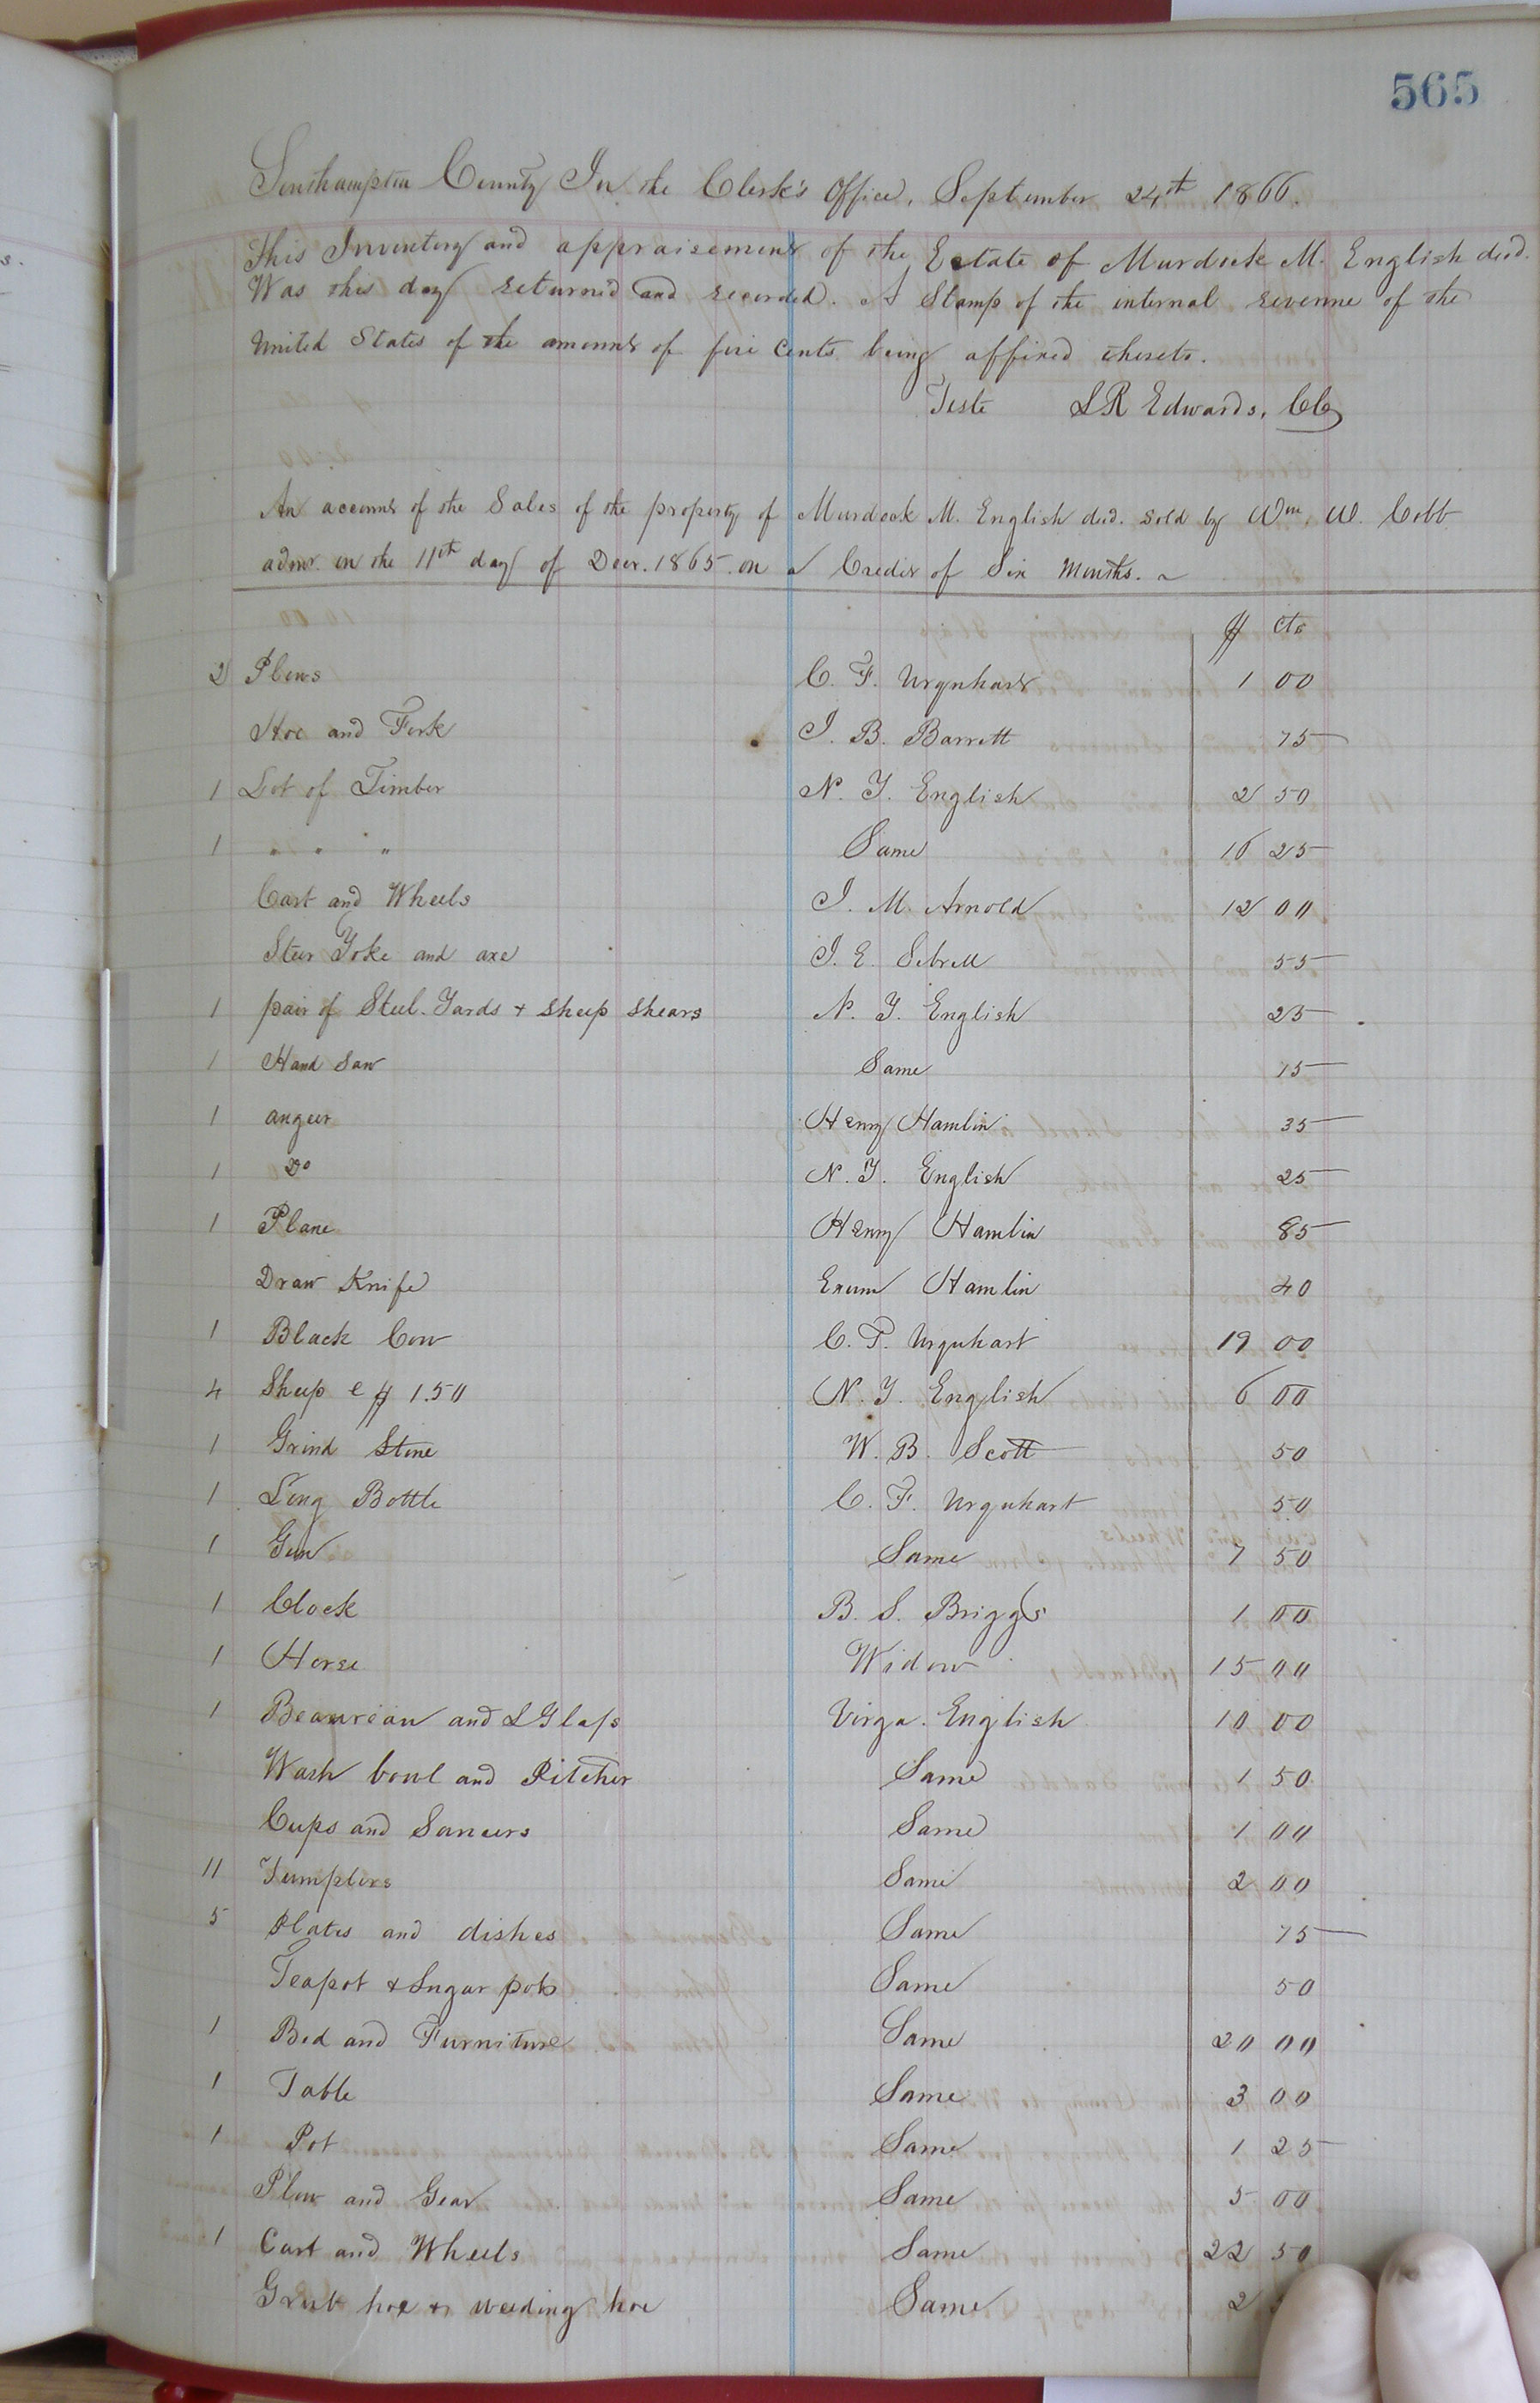 565
Southampton County In the Clerk's Office, September 24th 1866.
This Inventory and appraisement of the Estate of Murdock M. English decd.
Was this day returned and recorded. A Stamp of the internal revenue of the
United States of the amount of five Cents being affixed thereto.
Teste L R Edwards, CC
An account of the Sales of the property of Murdock M. English decd. sold by Wm. W. Cobb
admr. on the 11th day of Decr. 1865. on a Credit of Six Months.
$ cts
2 Plows C. F. Urquhart 1 00
Hoe and Fork J. B. Barrett 75
1 Lot of Timber N. T. English 2 50
1 " " " Same 16 25
Cart and Wheels J. M. Arnold 12 00
Steer Yoke and axe J. E. Sebrell 55
1 pair of Steel Yards + Sheep Shears N. T. English 25
1 Hand Saw Same 15
1 augeer Henry Hamlin 35
1 Do N. T. English 25
1 Plane Henry Hamlin 85
Draw Knife Exum Hamlin 40
1 Black Cow C. F. Urquhart 19 00
4 Sheep @ $ 1.50 N. T. English 6 00
1 Grind Stone W. B. Scott 50
1 Bottle C. F. Urquhart 50
1 Gun Same 7 50
1 Clock B. S. Briggs 1 00
1 Horse Widow 15 00
1 Beaureau and L Glass Virga. English 10 00
Wash bowl and Pitcher Same 1 50
Cups and Saucers Same 1 00
11 Tumplers Same 2 00
5 Plates and dishes Same 75
Teapot + Sugar pots Same 50
1 Bed and Furniture Same 20 00
1 Table Same 3 00
1 Pot Same 1 25
Plow and Gear Same 5 00
1 Cart and Wheels Same 22 50
Grub hoe + weeding hoe Same 2